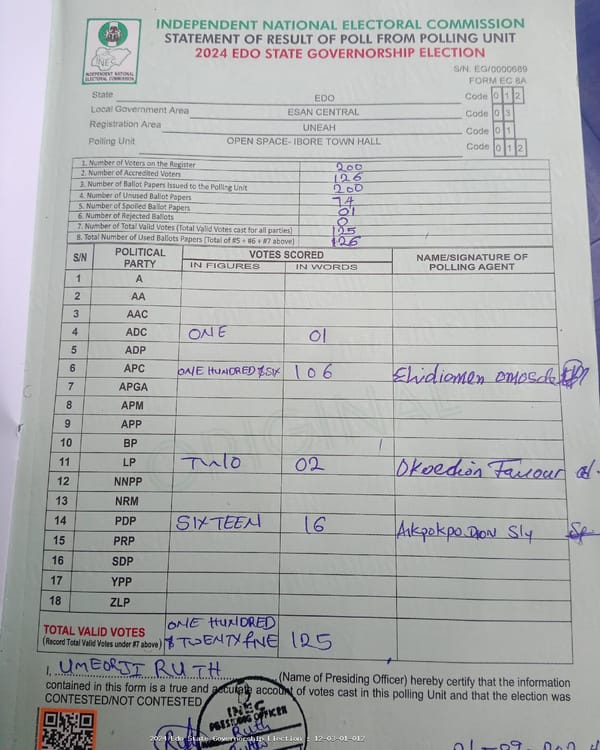 INDEPENDENT NATIONAL ELECTORAL COMMISSION
STATEMENT OF RESULT OF POLL FROM POLLING UNIT
2024 EDO STATE GOVERNORSHIP ELECTION
INEC
INDEPENDENT NATIONAL
ELECTORAL COMMISSION
S/N. EG/0000689
FORM EC 8A
State EDO Code 0 1 2
Local Government Area ESAN CENTRAL Code 0 3
Registration Area UNEAH Code 0 1
Polling Unit OPEN SPACE- IBORE TOWN HALL Code 0 1 2
1. Number of Voters on the Register 200
2. Number of Accredited Voters 126
3. Number of Ballot Papers Issued to the Polling Unit 200
4. Number of Unused Ballot Papers 74
5. Number of Spoiled Ballot Papers 01
6. Number of Rejected Ballots 0
7. Number of Total Valid Votes (Total Valid Votes cast for all parties) 125
8. Total Number of Used Ballots Papers (Total of #5 + #6 + #7 above) 126
S/N POLITICAL PARTY VOTES SCORED NAME/SIGNATURE OF POLLING AGENT
IN FIGURES IN WORDS
1 A
2 AA
3 AAC
4 ADC ONE 01
5 ADP
6 APC ONE HUNDRED & SIX 106 Ehidiamen
7 APGA
8 APM
9 APP
10 BP
11 LP TWO 02 Okoedion Favour
12 NNPP
13 NRM
14 PDP SIXTEEN 16 Sly
15 PRP
16 SDP
17 YPP
18 ZLP
ORIGINAL
TOTAL VALID VOTES ONE HUNDRED
(Record Total Valid Votes under #7 above) & TWENTY FIVE 125
I, UMEORJI RUTH (Name of Presiding Officer) hereby certify that the information
contained in this form is a true and accurate account of votes cast in this polling Unit and that the election was
CONTESTED/NOT CONTESTED
INEC
PRESIDING OFFICER
2024 Edo State Governorship Election : 12-03-01-012